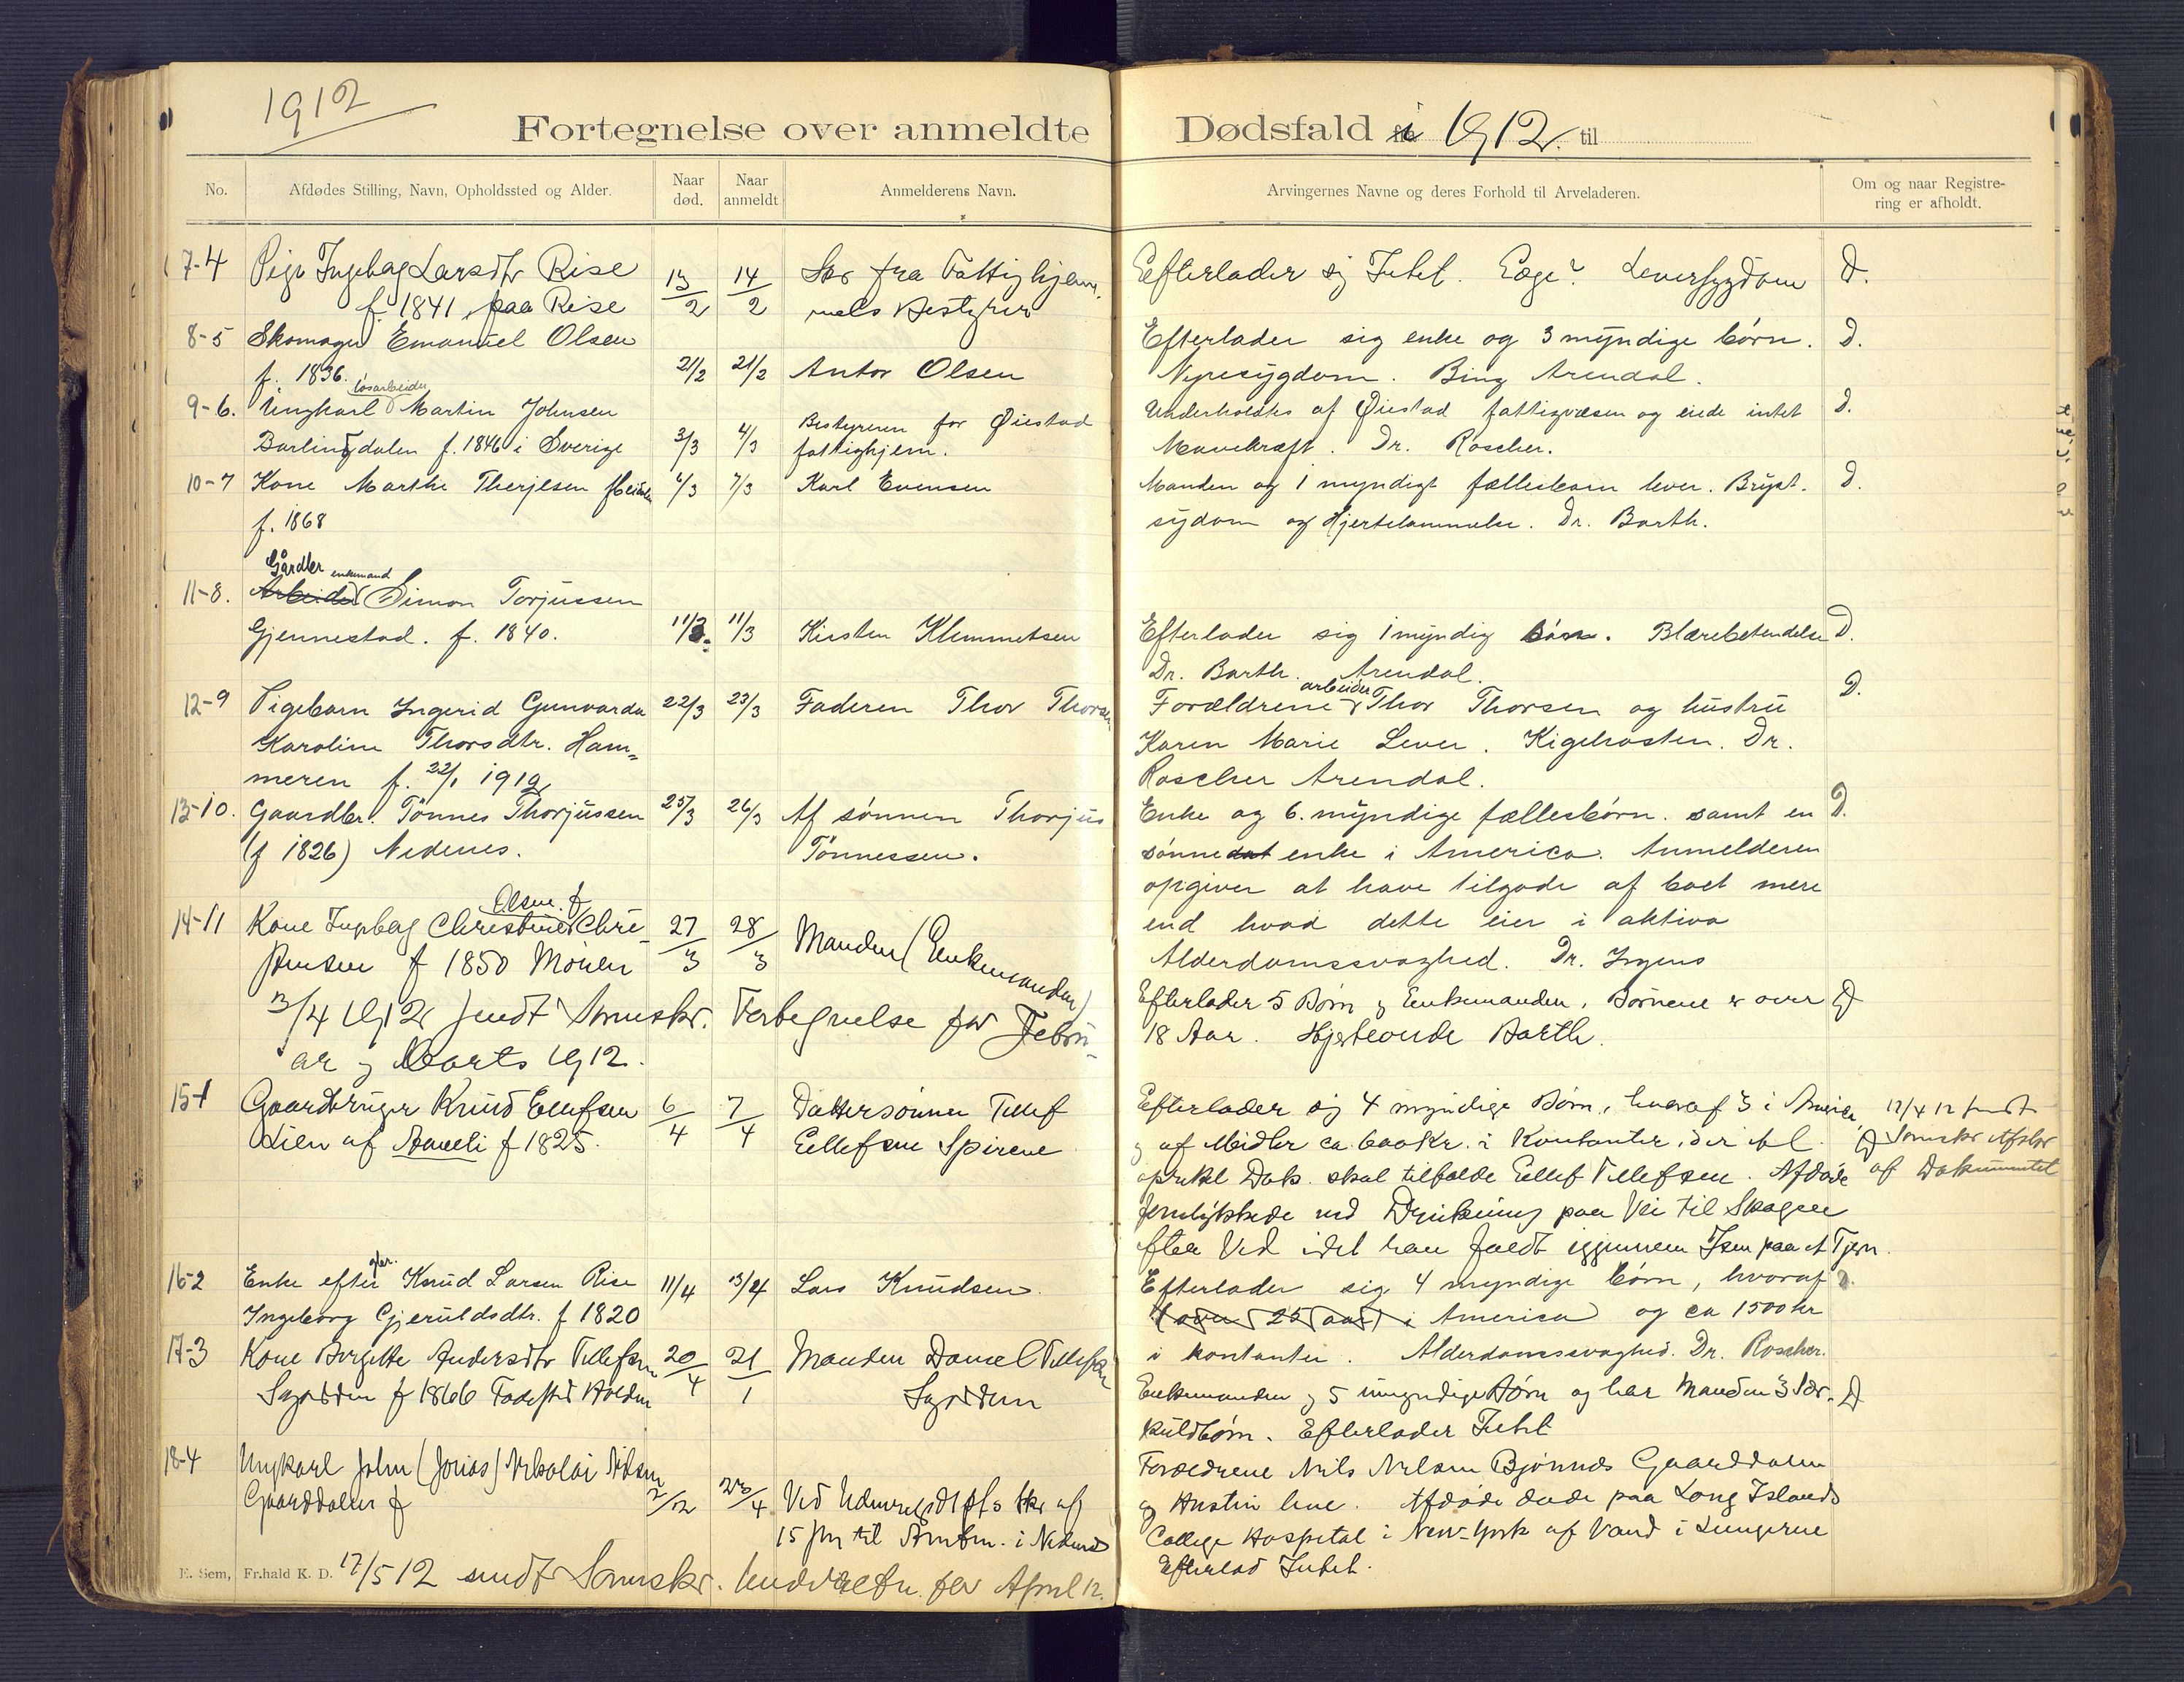 1912
Fortegnelse over anmeldte Dødsfald i 1912. til
No.
Afdødes Stilling, Navn, Opholdssted og Alder.
Naar død.
Naar anmeldt
Anmelderens Navn.
Arvingernes Navne og deres Forhold til Arveladeren.
Om og naar Registrering er afholdt.
7-4 Pige Ingebog Larsdtr Rise 13/2 14/2 Skr fra Fattighjem- Eefterlader sig Intet. Læge? Leversygdom D.
f. 1841, paa Rise mets Bestyrer
8-5 Skomager Emanuel Olsen Efterlader sig enke og 3 myndige børn. D.
f. 1836. 21/2 21/2 Antor Olsen Nyresygdom. Bing Arendal.
løsarbeider
9-6. Ungkarl Martin Johnsen Bestyreren for Øiestad Underholdtes af Øiestad fattigvæsen og eiede intet D.
Barlindalen f. 1846 i Sverige 3/3 4/3 fattighjem. Mavekræft. Dr. Roscher.
10-7 Kone Marthe Therjesen 6/3 7/3 Karl Evensen Manden og 1 myndigt fællesbarn lever. Bryst- D.
f. 1868 sygdom og Hjertelammelse. Dr. Barth.
Gårdbr enkemand
11-8. Arbeider Simon Torjussen
Gjennestad. f. 1840. 11/3. 11/3 Kirsten Klemmetsen Efterlader sig 1 myndig børn. Blærebetendelse D.
Dr. Barth. Arendal.
arbeider
12-9 Pigebarn Ingerid Gunvarda 22/3 23/3 Faderen Thor Thorsen Forældrene Thor Thorsen og hustru D.
Karoline Thorsdtr. Ham- Karen Marie Lever. Kigehosten. Dr.
meren f. 22/1 1912 Roscher Arendal.
13-10. Gaardbr. Tönnes Thorjussen 25/3 26/3 Af sønnen Thorjus Enke og 6. myndige fællesbørn. samt en D.
(f 1826) Nedenes. Tönnessen. sønne dat enke i America. Anmelderen
opgiver at have tilgode af boet mere
end hvad dette eier i aktiva
Alderdomssvaghed. Dr. Irgens
Olsen. f
14-11 Kone Ingebog Christine Chri- 27/3 28/3 Manden (Enkemanden) Efterlader 5 Børn og Eenkemanden. Børnene er over D
stensen f 1850 Mönen 18 Aar. Hjerteonde Barth.
13/4 1912 sendt Sorenskr. Fortegnelse for Febru-
ar og Marts 1912.
15-1 Gaardbruger Knud Ellefsen 6/4 7/4 Dattersönnen Tellef Efterlader sig 4 myndige Børn, hvoraf 3 i Amerika 12/4 12 sendt
Lien af Aaneli f 1825. Eellefsen Spirene og af Midler ca. 600 Kr. i Kontanter, der D Sorenskr Afskr
oprettet Dok. skal tilfalde Eellef Tellefsen. Afdøde af Dokumentet
forulykkede ved Drukning paa Vei til Skogen
efter Ved idet han faldt igjennem Isen paa et Tjern.
16-2 Enke efter gbr. Knud Larsen Rise 11/4 13/4 Lars Knudsen. Efterlader sig 4 myndige børn, hvoraf D.
Ingeborg Gjeruldsdtr. f 1820 1 (over 25 aar) i America og ca 1500 kr
i kontanter. Alderdomssvaghed. Dr. Roscher.
17-3 Kone Birgitte Andersdtr Tellefsen 20/4 21/1 Manden Daniel Tellefsen Enkemanden og 5 umyndige Børn og har Manden 3 Sær- D
f 1866 Fødested Holden kuldbørn. Efterlader Intet
18-4 Ungkarl John (Jonas) Nikolai Nilsen Forældrene Nils Nilsen Bjønnes Gaarddalen
Gaarddalen f 2/12 23/4 Ved Udenrigsdpts skr af og Hustru leve. Afdøde døde paa Long Islands
15 ds til Amtm. i Nedenes College Hospital i New-York af Vand i Lungerne
Efterlod Intet.
E. Sem, Fr.hald K. D. 17/5 12 sendt Sorenskr. for April 12.